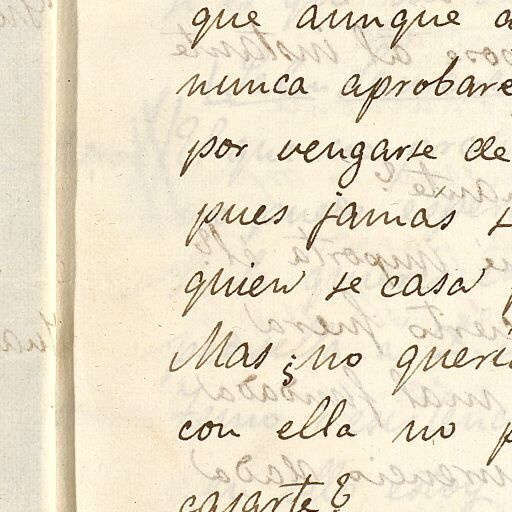 que aunque a
nunca aprobare
por vengarse de
pues jamas s
quien se casa p
Mas ¿no queria
con ella no p
casarte?